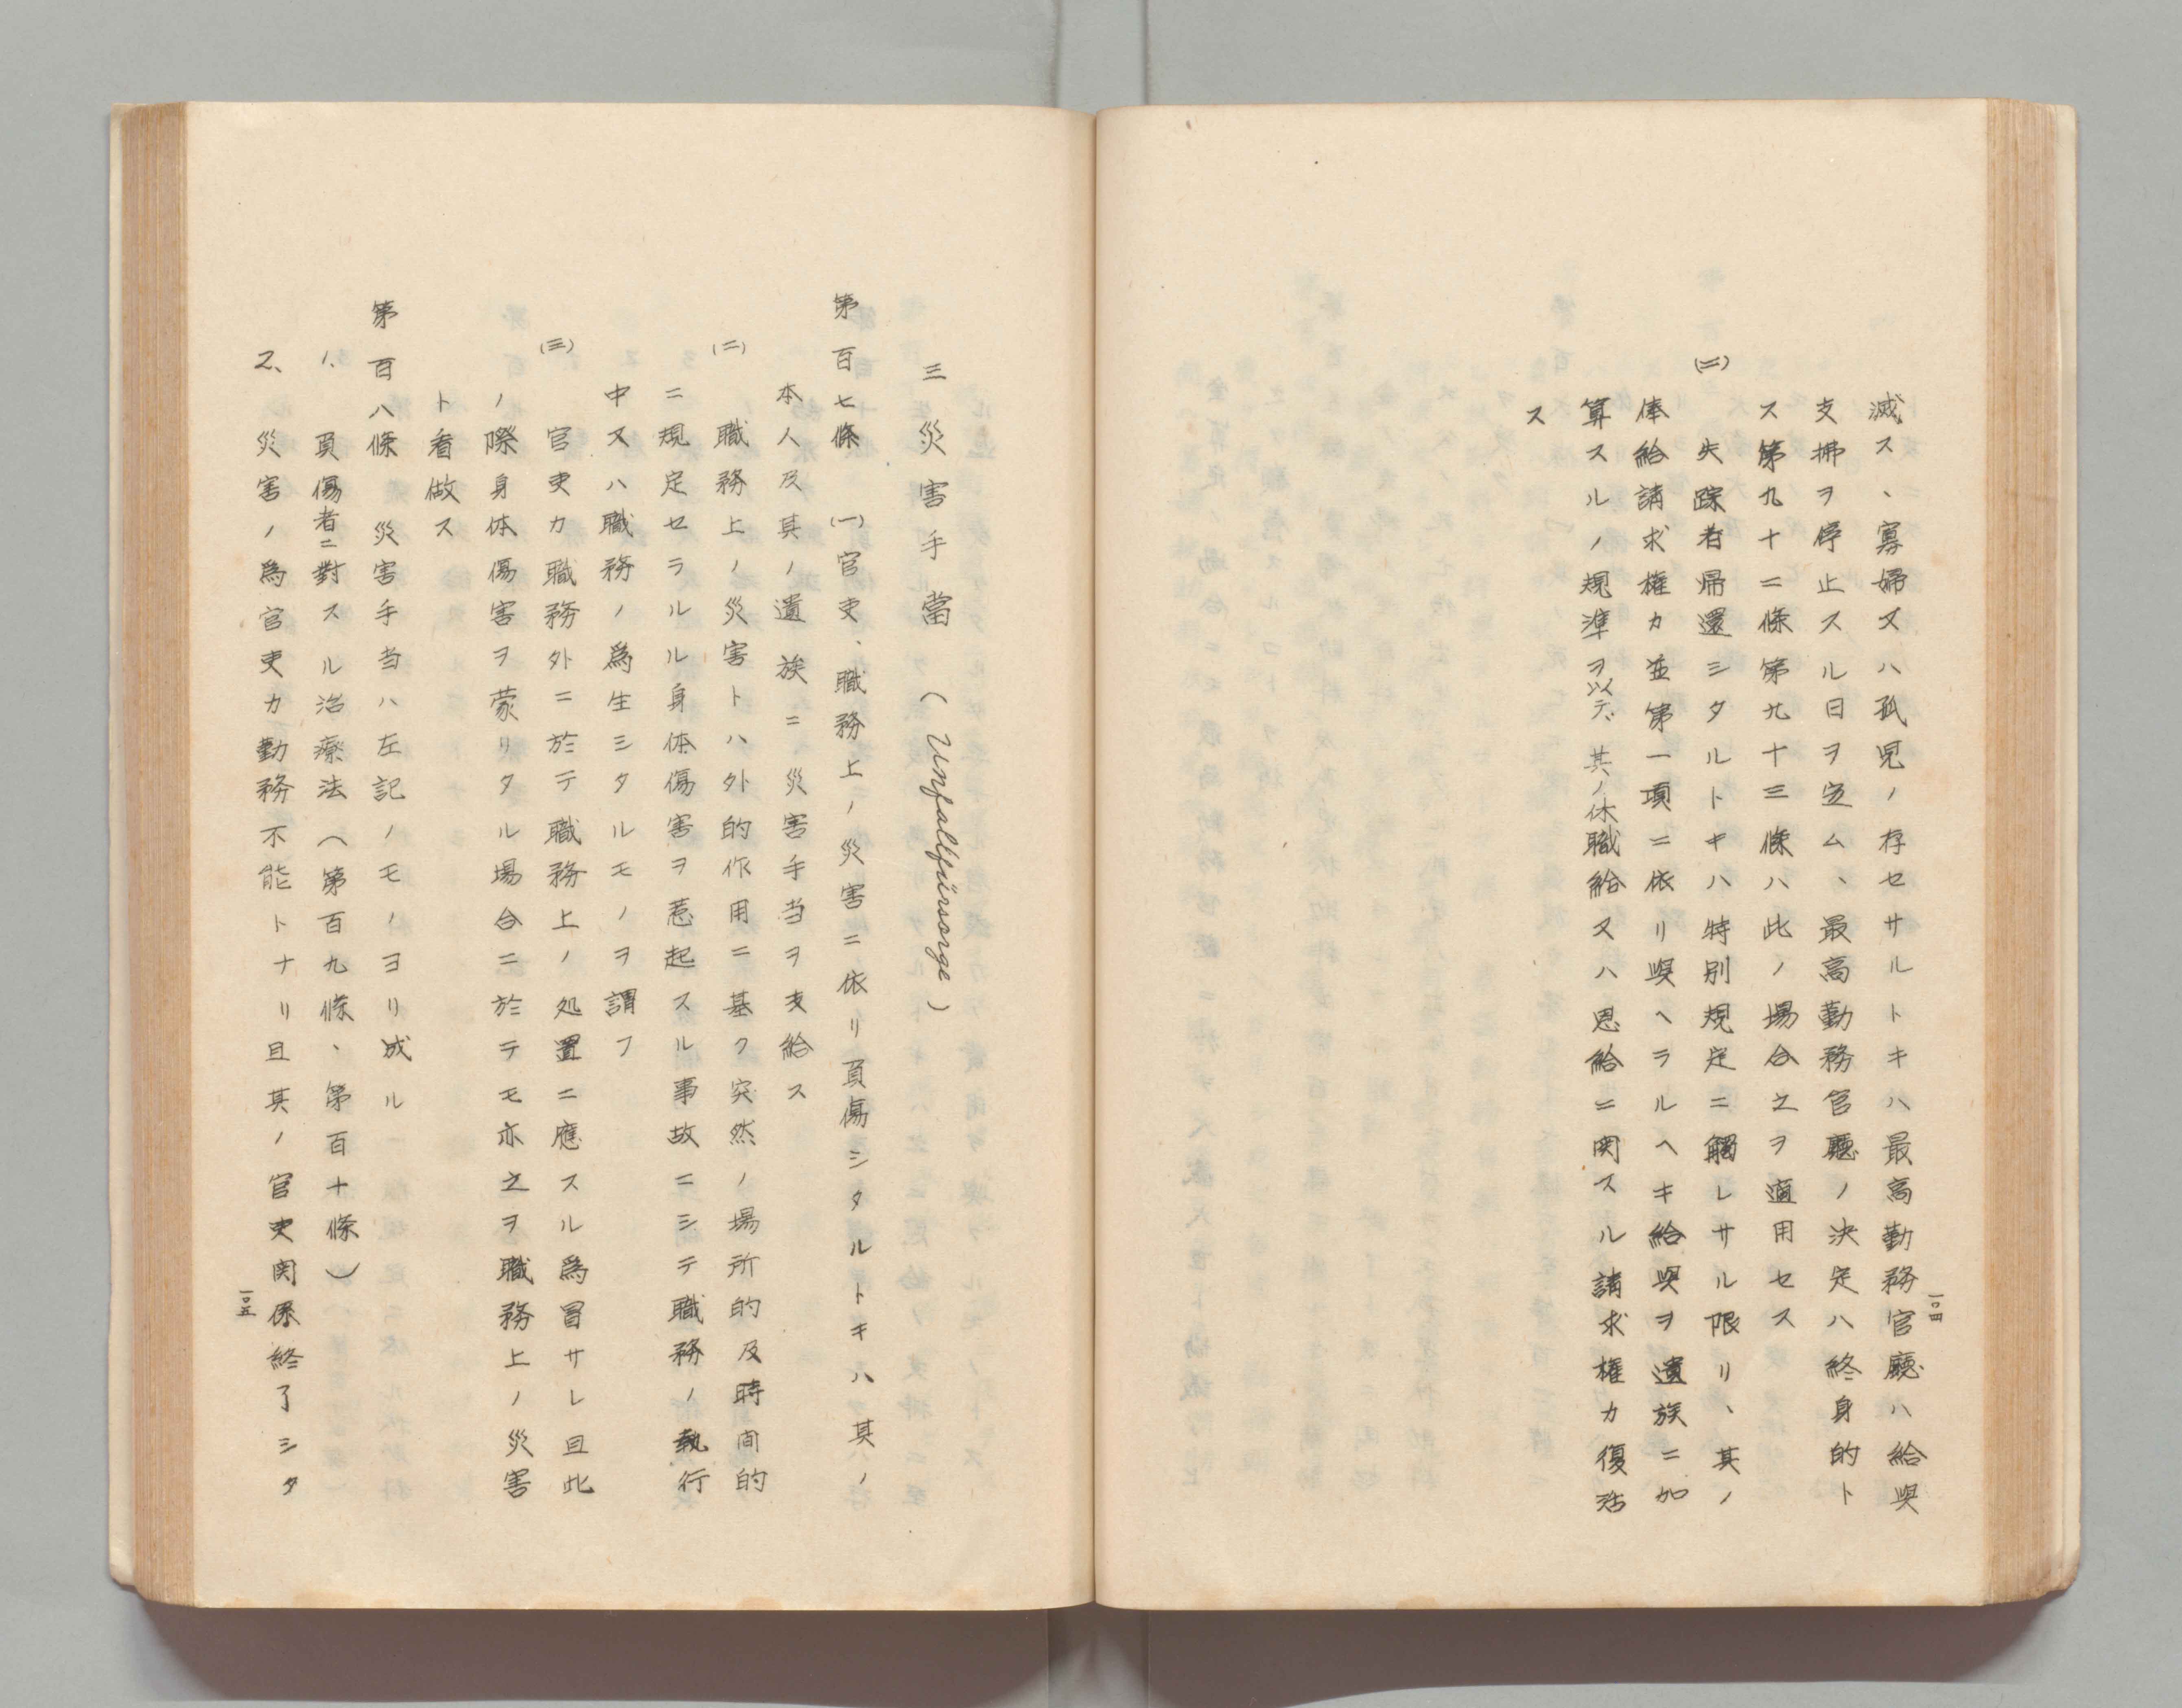 滅ス、寡婦又ハ孤児ノ存セサルトキハ最高勤務官廳ハ給與
支拂ヲ停止スル日ヲ定ム、最高勤務官廳ノ決定ハ終身的ト
ス第九十二條第九十三條ハ此ノ場合之ヲ適用セス
(二) 失踪者帰還シタルトキハ特別規定ニ觸レサル限リ、其ノ
俸給請求権カ並第一項ニ依リ與ヘラルヘキ給與ヲ遺族ニ加
算スルノ規準ヲ以テ、其ノ休職給又ハ恩給ニ関スル請求権カ復活
ス
一〇四
三 災害手當 (Unfallfürsorge)
第百七條 (一)官吏、職務上ノ災害ニ依リ負傷シタルトキハ其ノ
本人及其ノ遺族ニ災害手当ヲ支給ス
(二) 職務上ノ災害トハ外的作用ニ基ク突然ノ場所的及時間的
ニ規定セラルル身体傷害ヲ惹起スル事故ニシテ職務ノ執行
中又ハ職務ノ為生シタルモノヲ謂フ
(三) 官吏カ職務外ニ於テ職務上ノ処置ニ應スル為冒サレ且此
ノ際身体傷害ヲ蒙リタル場合ニ於テモ亦之ヲ職務上ノ災害
ト看做ス
第百八條 災害手当ハ左記ノモノヨリ成ル
1、負傷者ニ對スル治療法(第百九條、第百十條)
2、災害ノ為官吏カ勤務不能トナリ且其ノ官吏関係終了シタ
一〇五